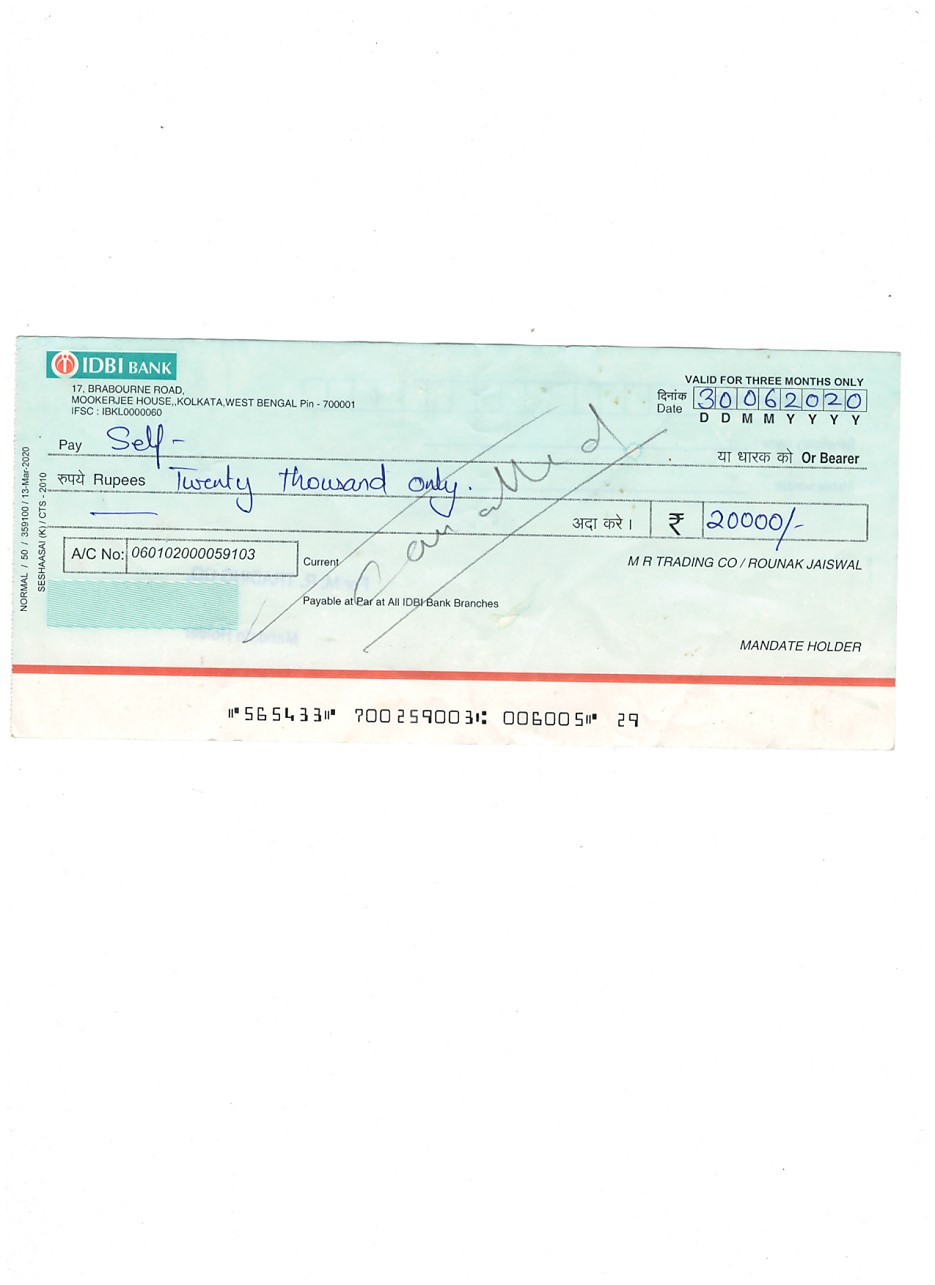 IDBI BANK
17, BRABOURNE ROAD,
MOOKERJEE HOUSE,,KOLKATA,WEST BENGAL Pin - 700001
IFSC : IBKL0000060
VALID FOR THREE MONTHS ONLY
दिनांक
Date 30062020
D D M M Y Y Y Y
Pay Self -
या धारक को Or Bearer
रुपये Rupees Twenty thousand only.
अदा करे । ₹ 20000/-
Cancelled
A/C No: 060102000059103
Current
M R TRADING CO / ROUNAK JAISWAL
Payable at Par at All IDBI Bank Branches
MANDATE HOLDER
NORMAL / 50 / 359100 / 13-Mar-2020
SESHAASAI (K) / CTS - 2010
⑈565433⑈ 700259003⑆ 006005⑈ 29